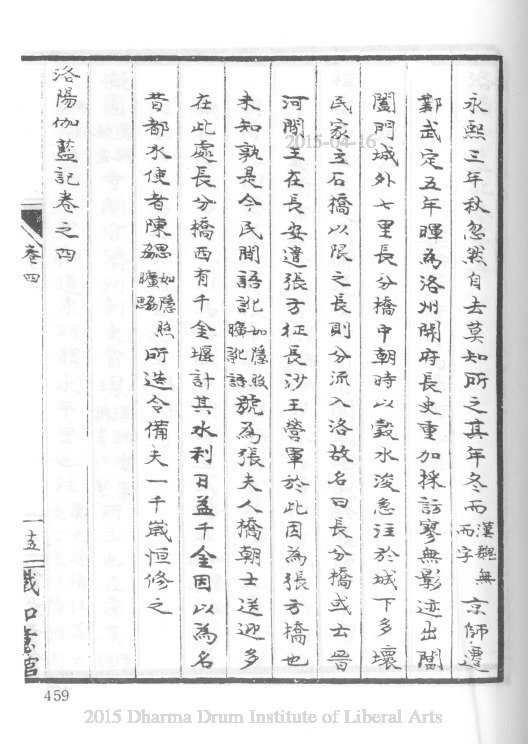 永熙三年秋忽然自去莫知所之其年冬而漢魏無而字京師遷
鄴武定五年暉為洛州開府長史重加採訪寥無影迹出閶
闔門城外七里長分橋中朝時以穀水浚急注於城下多壞
民家立石橋以限之長則分流入洛故名曰長分橋或士晉
河間王在長安遣張方征長沙王營軍於此因為張方橋也
未知孰是今民間語訛如隱號為張夫人橋朝士送迎多
在此處長分橋西有千金堰計其水利日益千金因以為名
昔都水使者陳勰如隱所造令備夫一千歲恒修之
洛陽伽藍記卷之四
卷四
十五
2015-04-16
459
2015 Dharma Drum Institute of Liberal Arts